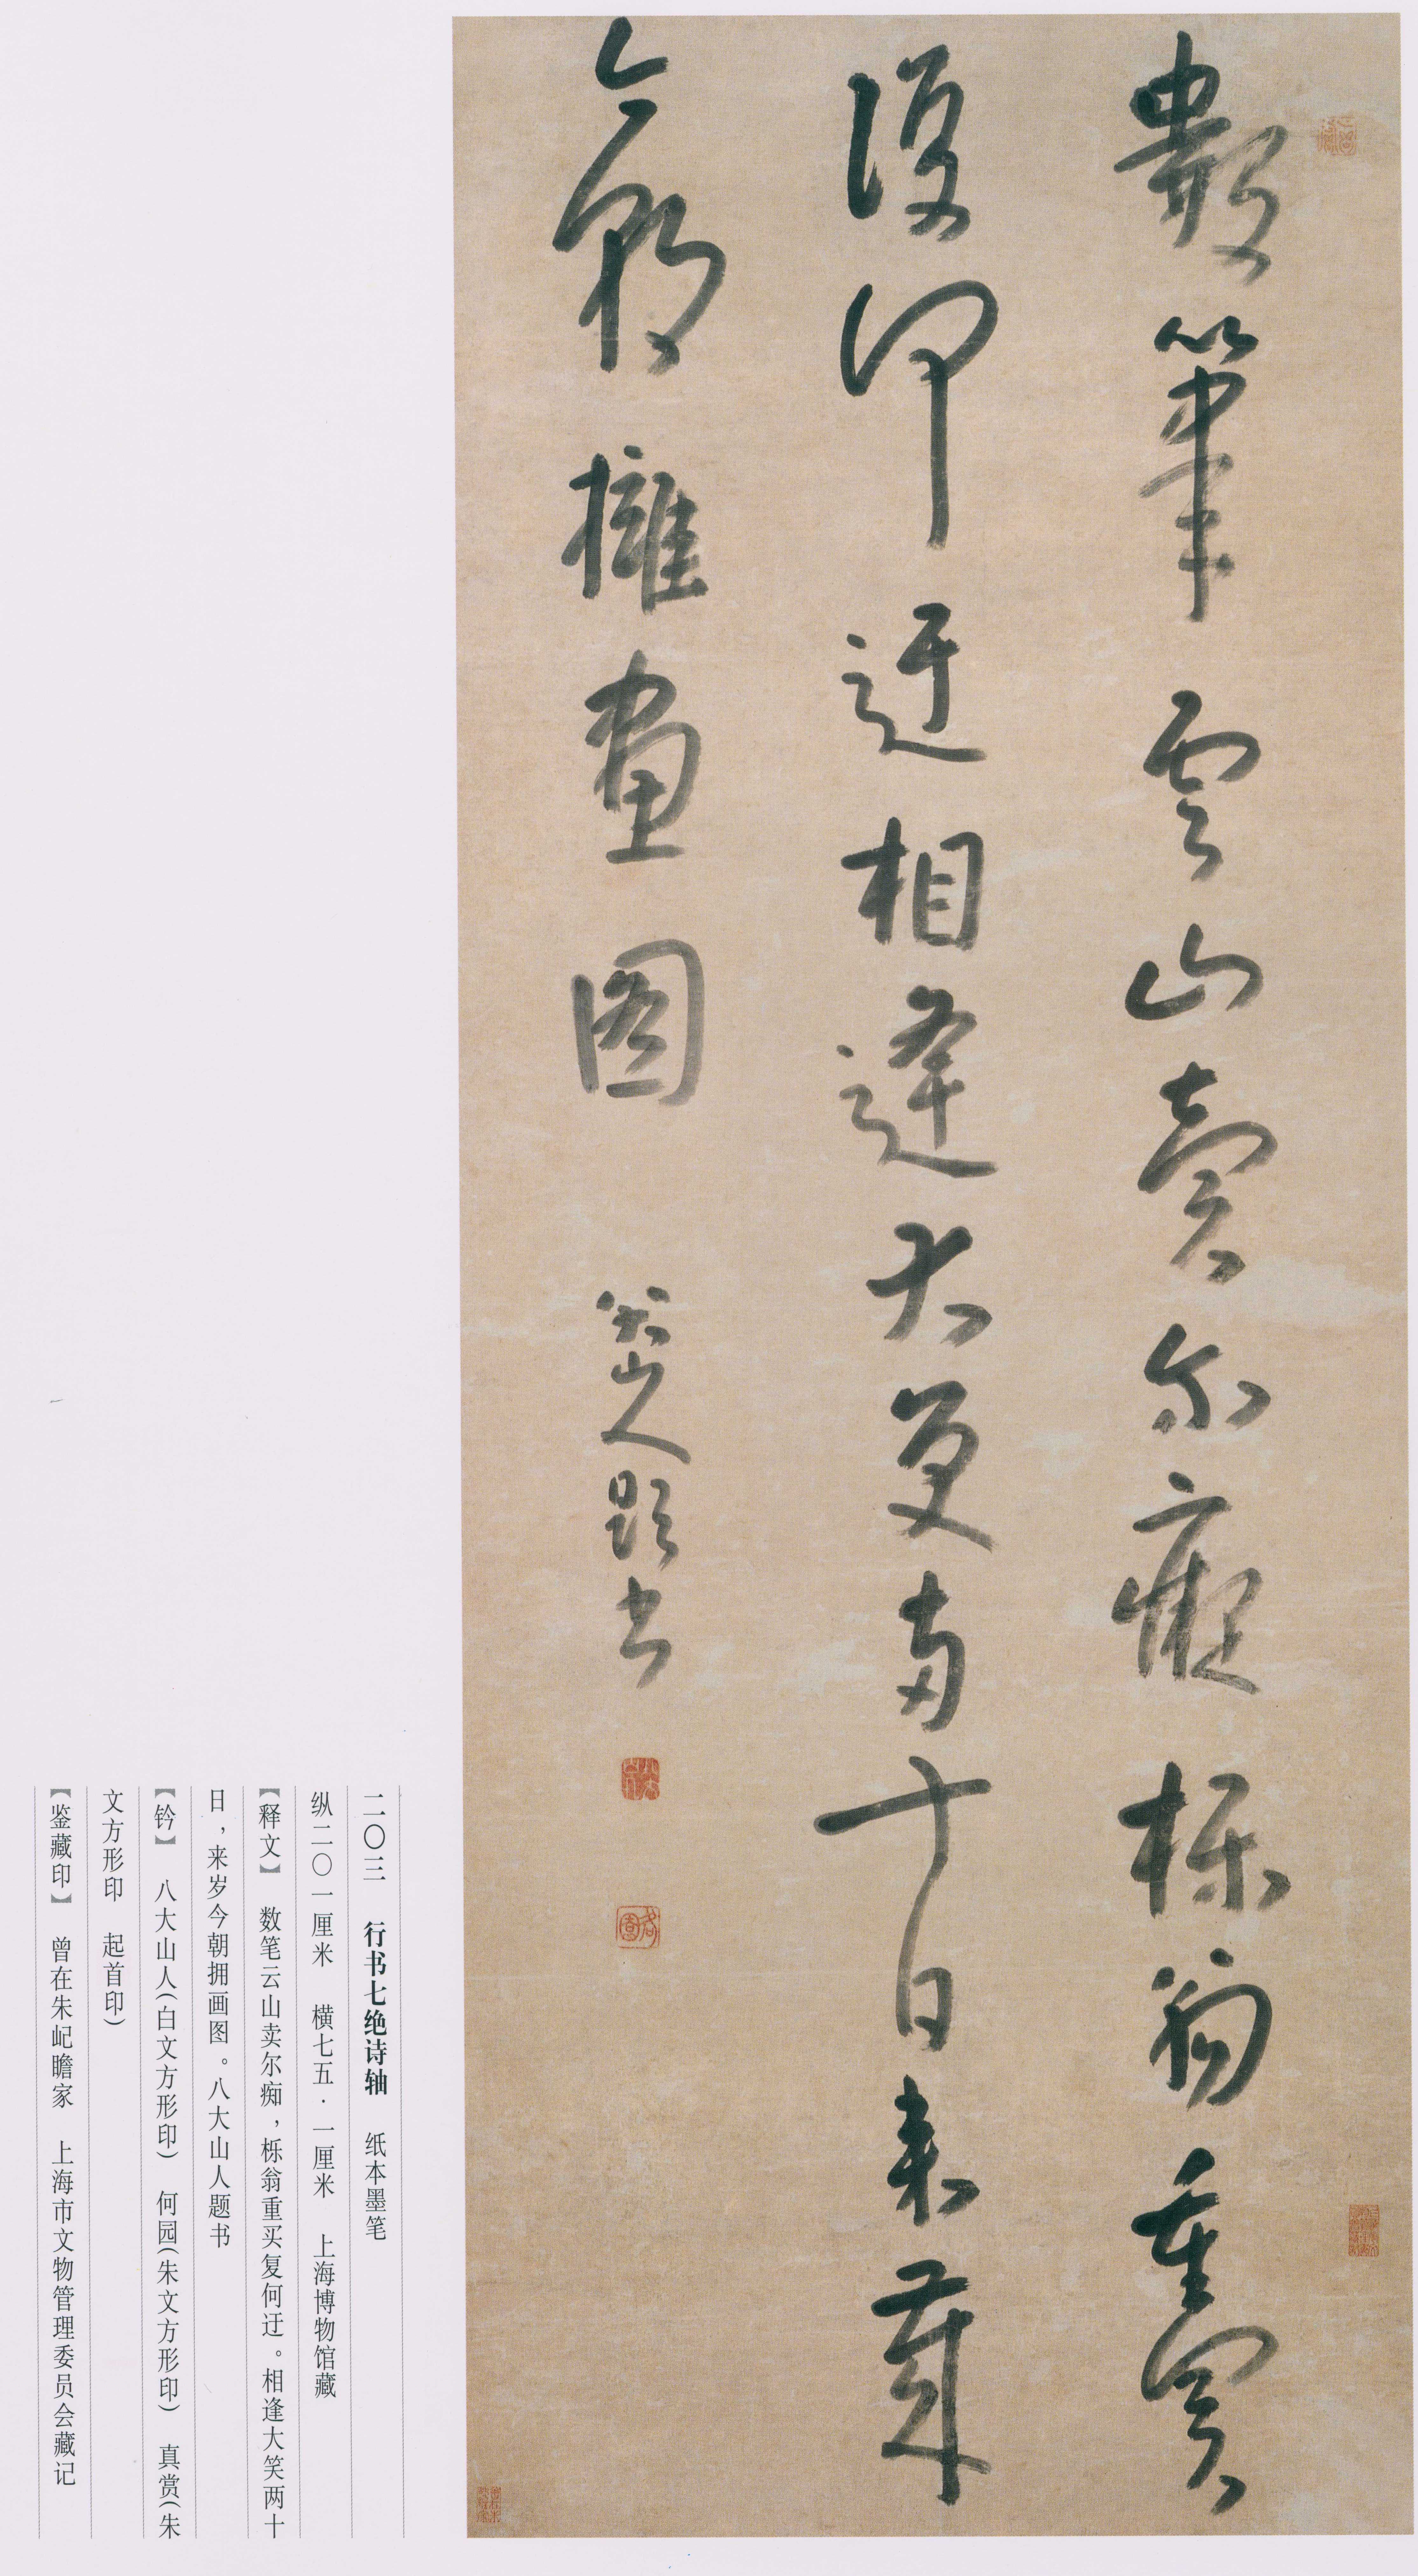 數筆雲山賣尔癡栎翁重買
復何迂相逢大更两十日来歲
今朝擁畫图 八大山人題书
八大山人
何園
二〇三 行书七绝诗轴 纸本墨笔
纵二〇一厘米 横七五·一厘米 上海博物馆藏
【释文】 数笔云山卖尔痴，栎翁重买复何迂。相逢大笑两十
日，来岁今朝拥画图。八大山人题书
【钤】 八大山人(白文方形印) 何园(朱文方形印) 真赏(朱
文方形印 起首印)
【鉴藏印】 曾在朱屺瞻家 上海市文物管理委员会藏记